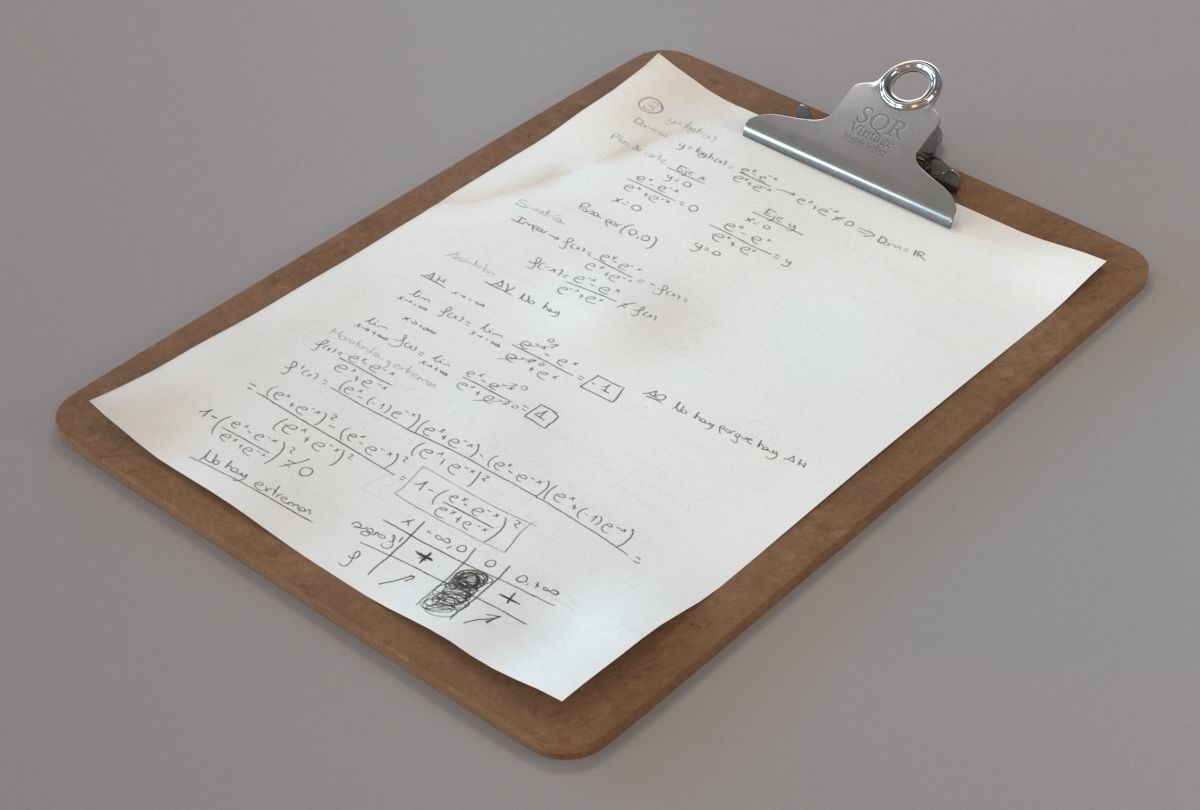 SQR
Vintage
③ y=tgh(x)
Dominio y=tgh(x)= (e^x-e^-x)/(e^x+e^-x) → e^x+e^-x≠0 ⇒ Dom=ℝ
Ptos de corte Eje x
y=0
(e^x-e^-x)/(e^x+e^-x)=0
x=0
Eje y
x=0
(e^x-e^x)/(e^x+e^x)=y
y=0
Pasa por (0,0)
Simetría
Impar → f(x)= (e^x-e^-x)/(e^x+e^-x) = -f(x)=
f(-x)= (e^-x-e^x)/(e^-x+e^x) ≠ f(x)
Asíntotas
AH x→-∞
x→+∞
AV No hay
lim x→-∞ f(x)= lim x→-∞ = -1
lim x→+∞ f(x)= lim x→+∞ = 1
AO No hay porque hay AH
Monotonía y extremos
f(x)= (e^x-e^-x)/(e^x+e^-x)
f'(x)= ((e^x-(-1)e^-x)(e^x+e^-x)-(e^x-e^-x)(e^x+(-1)e^-x))/(e^x+e^-x)^2 =
= ((e^x+e^-x)^2-(e^x-e^-x)^2)/(e^x+e^-x)^2 = 1-((e^x-e^-x)/(e^x+e^-x))^2
1-((e^x-e^-x)/(e^x+e^-x))^2≠0
No hay extremos
x -∞,0 0 0,+∞
signo f' + +
f ↗ ↗